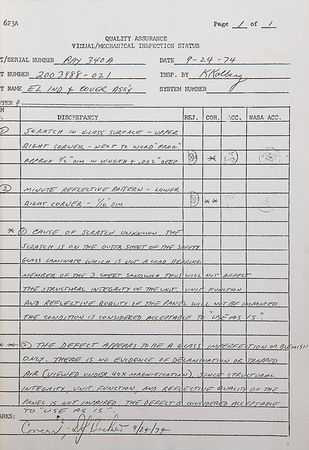 623A
Page 1 of 1
QUALITY ASSURANCE
VISUAL/MECHANICAL INSPECTION STATUS
T/SERIAL NUMBER RAY 340A DATE 9-24-74
T NUMBER 2003988-021 INSP. BY
T NAME EL IND & COVER ASS'Y SYSTEM NUMBER
TER #
DISCREPANCY REJ. COR. ACC. NASA ACC.
1 SCRATCH IN GLASS SURFACE - UPPER
RIGHT CORNER - NEXT TO WORD "PROG"
APPROX 1/2" DIM IN LENGTH & .002" DEEP *
2 MINUTE REFLECTIVE PATTERN - LOWER
RIGHT CORNER - 1/16" DIM **
* 1 CAUSE OF SCRATCH UNKNOWN. THE
SCRATCH IS ON THE OUTER SHEET OF THE SAFETY
GLASS LAMINATE WHICH IS NOT A LOAD BEARING
MEMBER OF THE 3 SHEET SANDWICH THUS WILL NOT AFFECT
THE STRUCTURAL INTEGRITY OF THE UNIT. UNIT FUNCTION
AND REFLECTIVE QUALITY OF THE PANEL WILL NOT BE IMPAIRED
THE CONDITION IS CONSIDERED ACCEPTABLE TO "USE AS IS".
** 2 THE DEFECT APPEARS TO BE A GLASS IMPERFECTION OR BLEMISH
ONLY. THERE IS NO EVIDENCE OF DELAMINATION OR TRAPPED
AIR (VIEWED UNDER 40X MAGNIFICATION). SINCE STRUCTURAL
INTEGRITY, UNIT FUNCTION, AND REFLECTIVE QUALITY OF THE
PANEL IS NOT IMPAIRED. THE DEFECT IS CONSIDERED ACCEPTABLE
TO "USE AS IS".
ARKS: 9/24/74